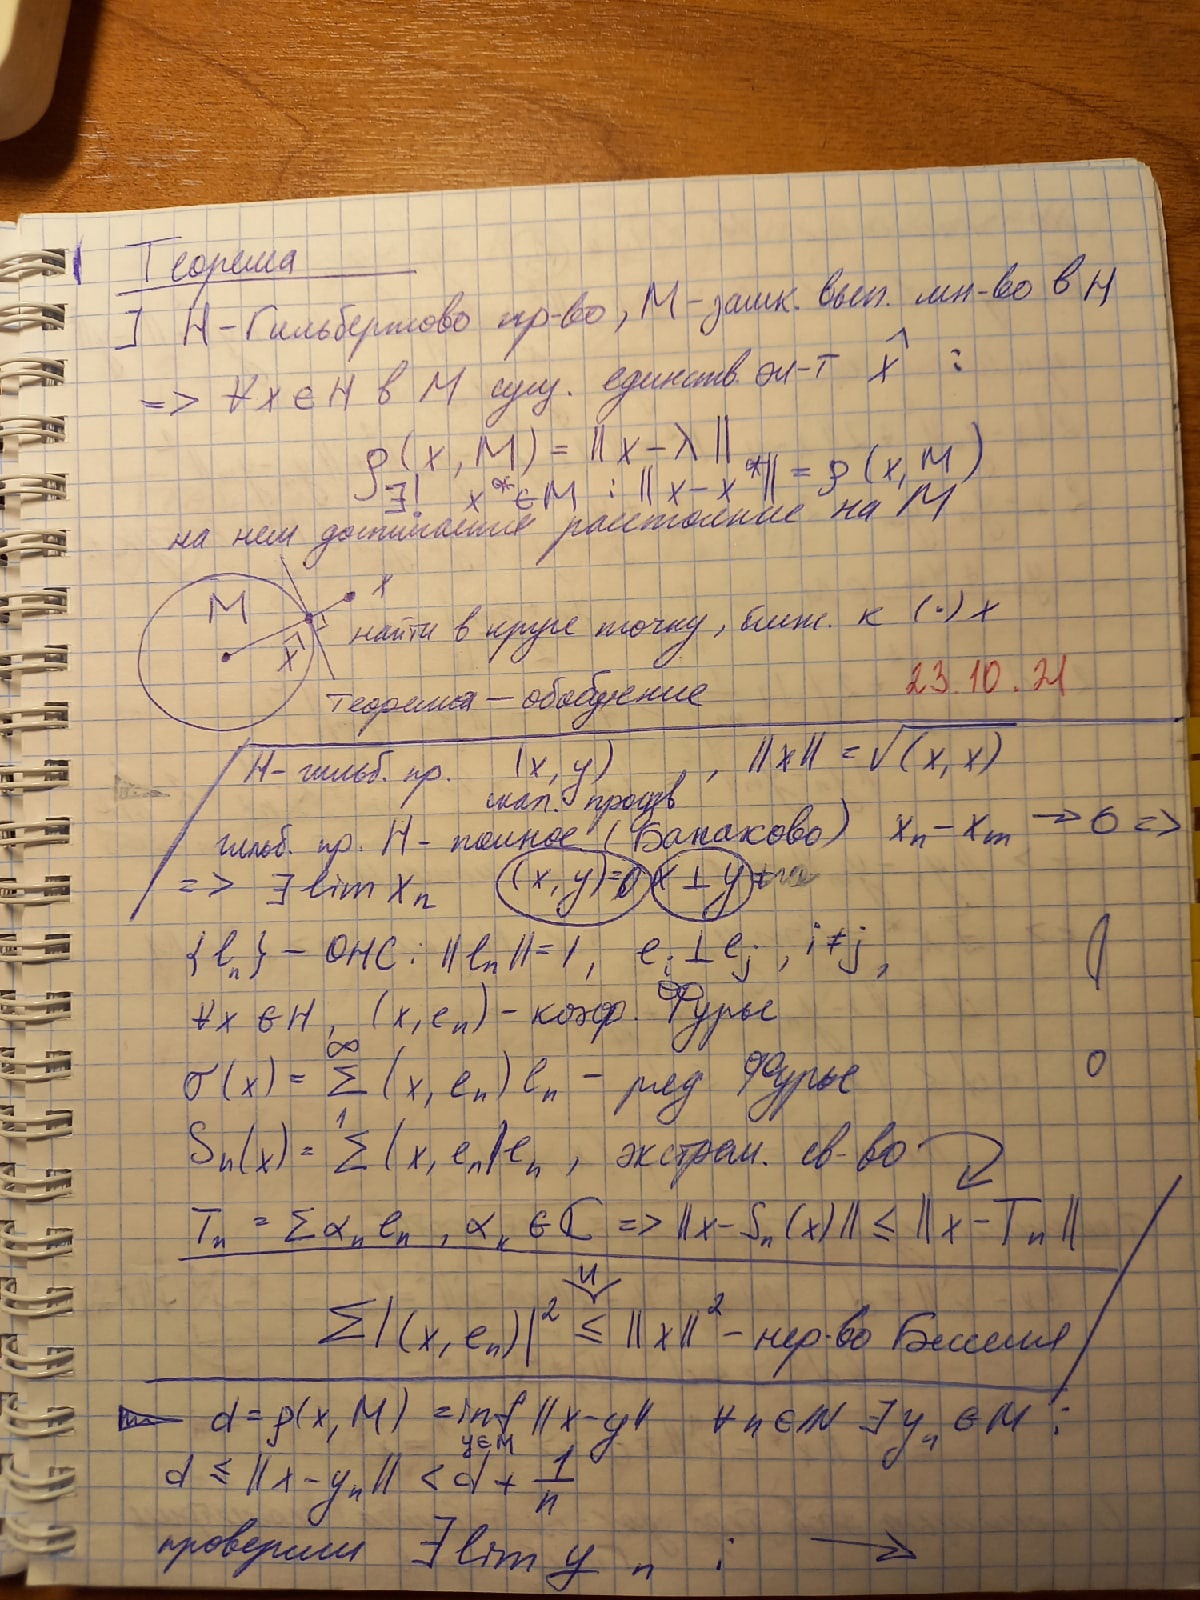 Теорема
∃ H - Гильбертово пр-во, M - замк. вып. мн-во в H
=> ∀x ∈ H в M сущ. единств. эл-т x̂ :
ρ(x, M) = ||x - λ||
∃! x* ∈ M : ||x - x*|| = ρ(x, M)
на нем достигается расстояние на M
M x
x̂ найти в круге точку, ближ. к (·) x
Теорема - обобщение 23.10.21
H - гильб. пр. (x, y) , ||x|| = √(x, x)
скал. произв
гильб. пр. H - полное (Банахово) xₙ - xₘ → 0 =>
=> ∃ lim xₙ (x, y) = 0 x ⊥ y
{eₙ} - ОНС : ||eₙ|| = 1, eᵢ ⊥ eⱼ , i ≠ j,
∀x ∈ H, (x, eₙ) - коэф. Фурье
σ(x) = ∑₁^∞ (x, eₙ) eₙ - ряд Фурье
Sₙ(x) = ∑ (x, eₙ) eₙ , экстрем. св-во
Tₙ = ∑ αₙ eₙ , αₖ ∈ ℂ => ||x - Sₙ(x)|| ≤ ||x - Tₙ||
∑ |(x, eₙ)|² ≤ ||x||² - нер-во Бесселя
d = ρ(x, M) = inf_{y∈M} ||x - y|| ∀n ∈ ℕ ∃ yₙ ∈ M :
d ≤ ||x - yₙ|| < d + 1/n
проверим ∃ lim yₙ : →